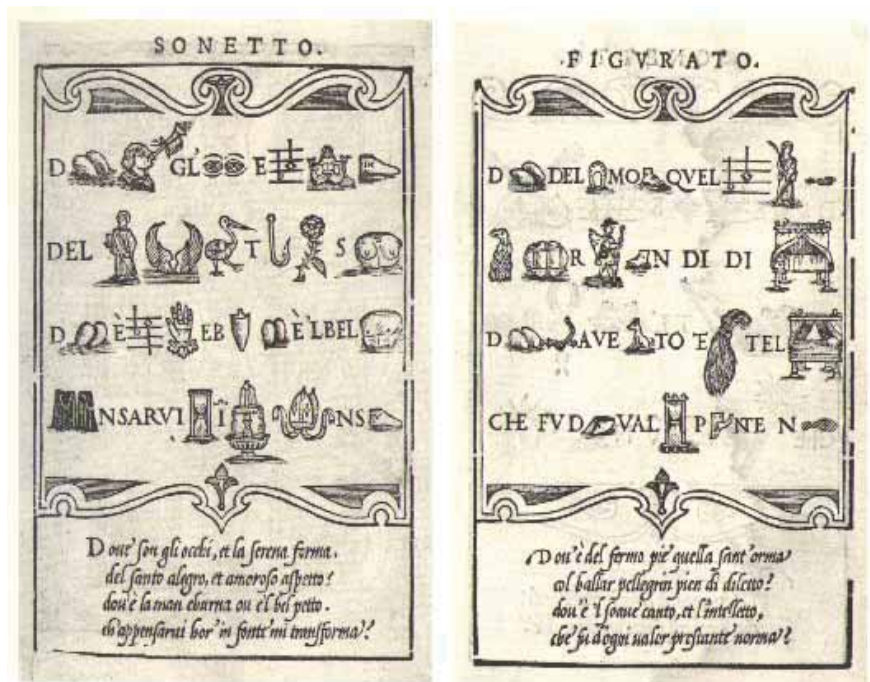 SONETTO.
D GL' E
DEL T S
D È EB È LBEL
NSARVI Î NS
Doue son gli occhi, et la serena forma.
del santo alegro, et amoroso aspetto?
dou'è la man eburna ou'è'l bel petto.
ch'appensarui hor' in fonte mi transforma?
.FIGVRATO.
D DEL MO QVEL
R N DI DI
D AVE TO E TEL
CHE FV D VAL P NTE N
Dou'è del fermo piè quella sant'orma
col ballar pellegrin pien di diletto?
dou'è 'l soaue canto, et l'intelletto,
che fu d'ogni valor prestante norma?